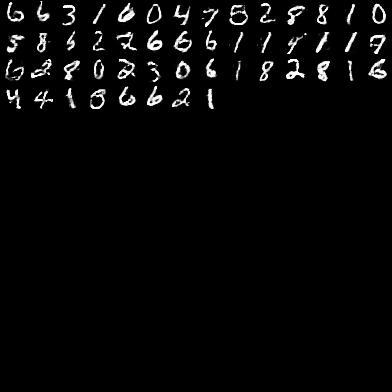 6 6 3 1 6 0 4 7 8 2 8 8 1 0
5 8 6 2 2 6 6 6 1 1 4 1 1 7
6 2 8 0 2 3 0 6 1 8 2 8 1 6
4 4 1 8 6 6 2 1